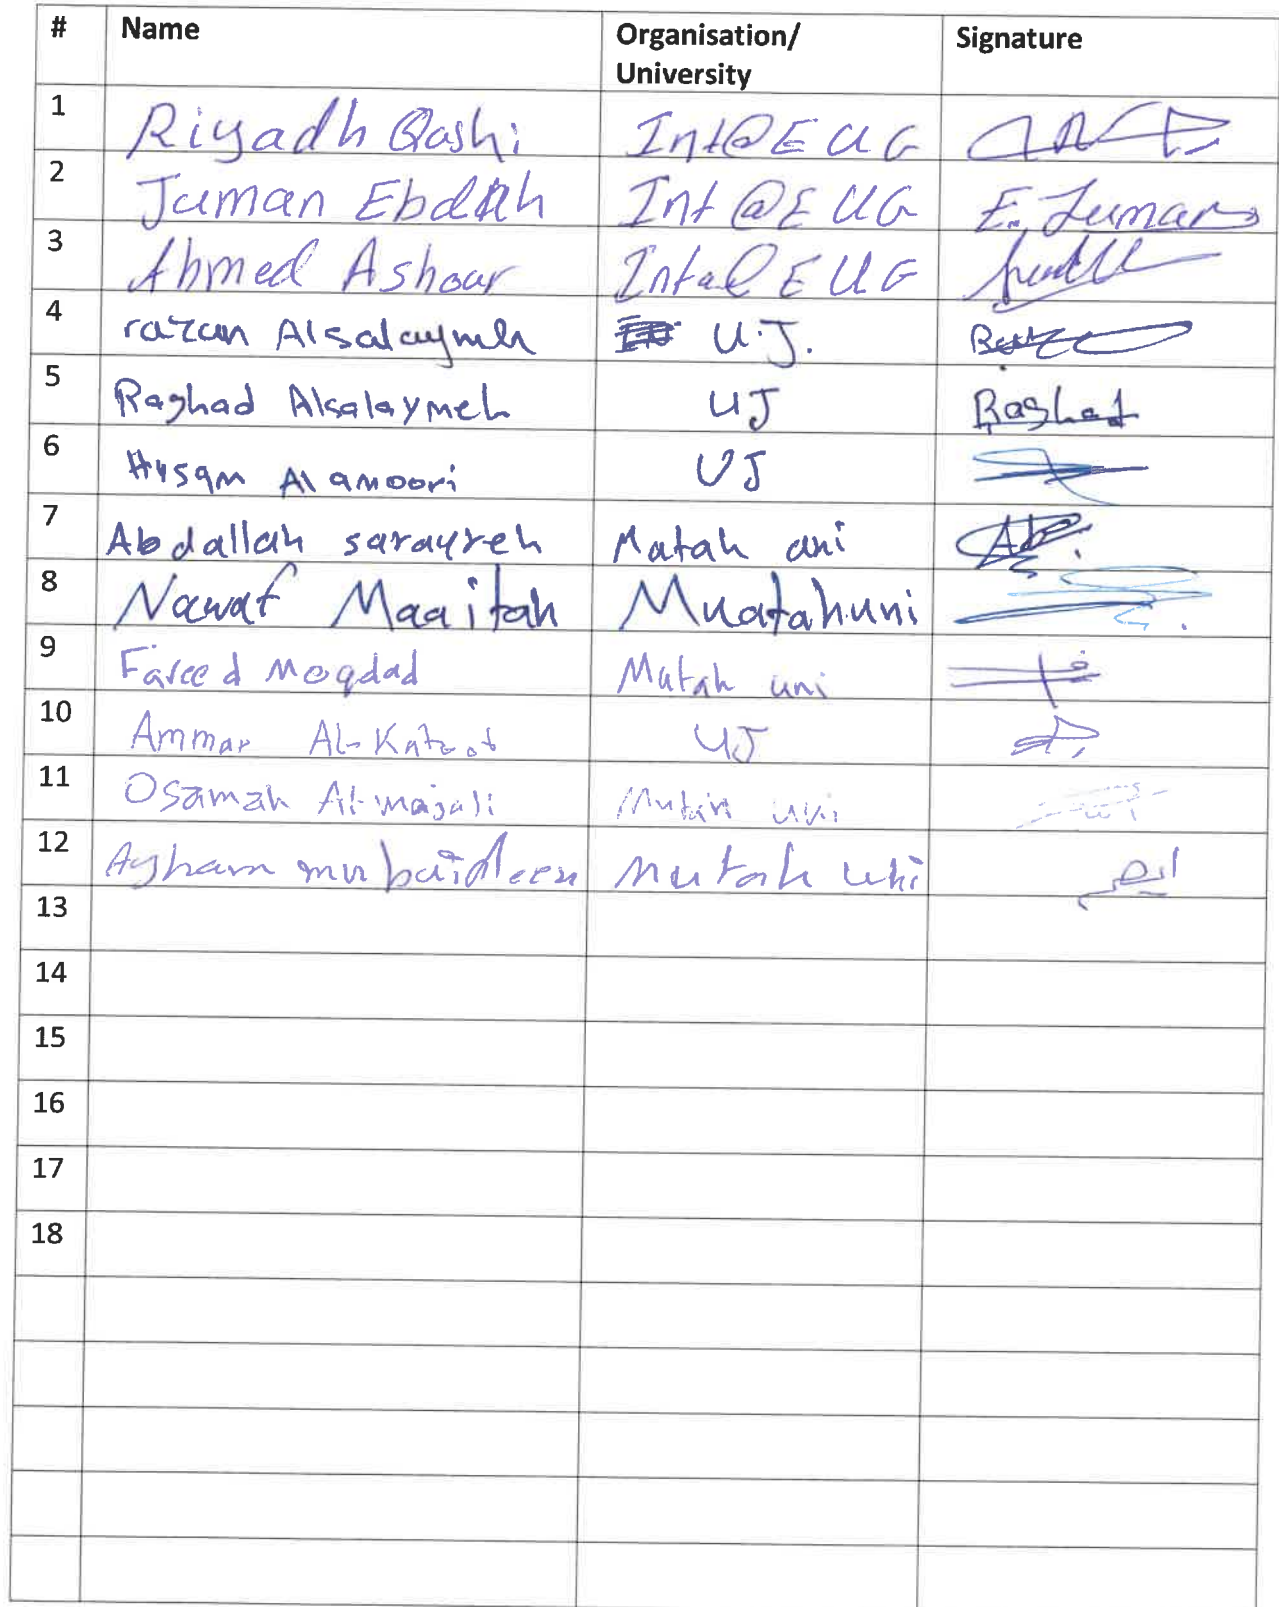 # Name Organisation/ University Signature
1 Riyadh Qashi Int@E UG
2 Juman Ebdah Int@E UG E. Juman
3 Ahmed Ashour Int@E UG
4 razan Alsalaymeh U.J.
5 Raghad Alsalaymeh UJ Raghad
6 Husam Alamoori UJ
7 Abdallah sarayreh Matah uni
8 Nawaf Maaitah Muatahuni
9 Fareed Moqdad Mutah uni
10 Ammar UJ
11 Osamah Al-majali Mutah uni
12 Ayham mubaideen mutah uni
13
14
15
16
17
18